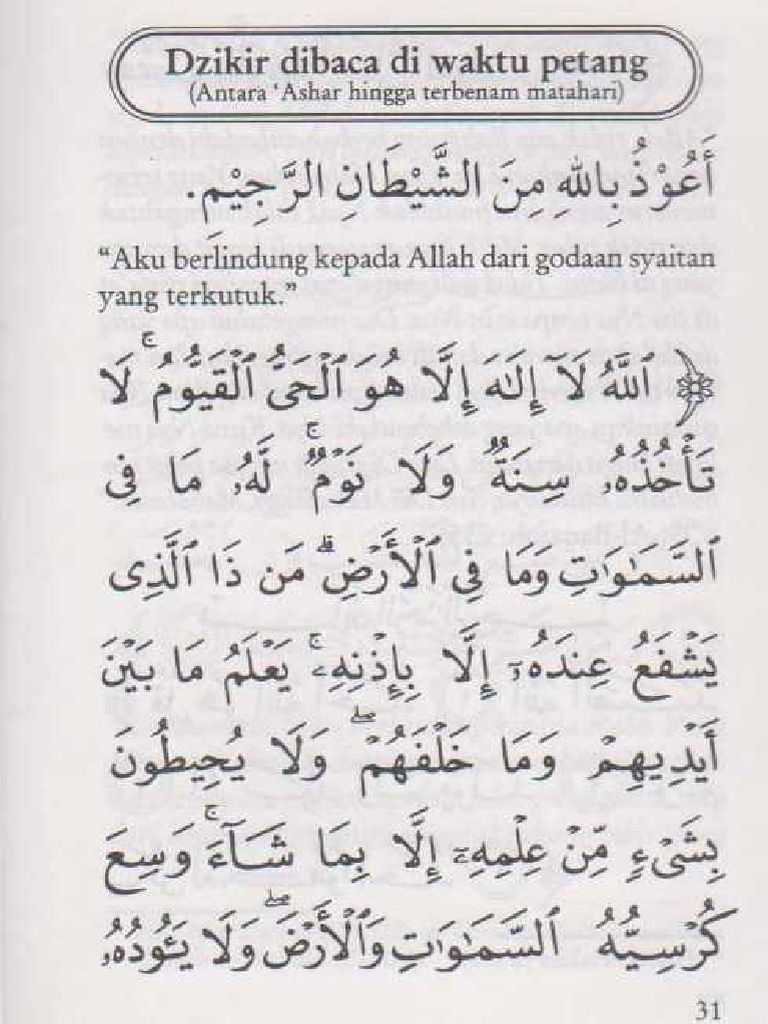 Dzikir dibaca di waktu petang
(Antara ‘Ashar hingga terbenam matahari)
أَعُوْذُ بِاللهِ مِنَ الشَّيْطَانِ الرَّجِيْمِ.
“Aku berlindung kepada Allah dari godaan syaitan
yang terkutuk.”
﴿ ٱللَّهُ لَآ إِلَٰهَ إِلَّا هُوَ ٱلْحَىُّ ٱلْقَيُّومُ ۚ لَا
تَأْخُذُهُۥ سِنَةٌ وَلَا نَوْمٌ ۚ لَّهُۥ مَا فِى
ٱلسَّمَٰوَٰتِ وَمَا فِى ٱلْأَرْضِ ۗ مَن ذَا ٱلَّذِى
يَشْفَعُ عِندَهُۥٓ إِلَّا بِإِذْنِهِۦ ۚ يَعْلَمُ مَا بَيْنَ
أَيْدِيهِمْ وَمَا خَلْفَهُمْ ۖ وَلَا يُحِيطُونَ
بِشَىْءٍ مِّنْ عِلْمِهِۦٓ إِلَّا بِمَا شَآءَ ۚ وَسِعَ
كُرْسِيُّهُ ٱلسَّمَٰوَٰتِ وَٱلْأَرْضَ ۖ وَلَا يَـُٔودُهُۥ
31